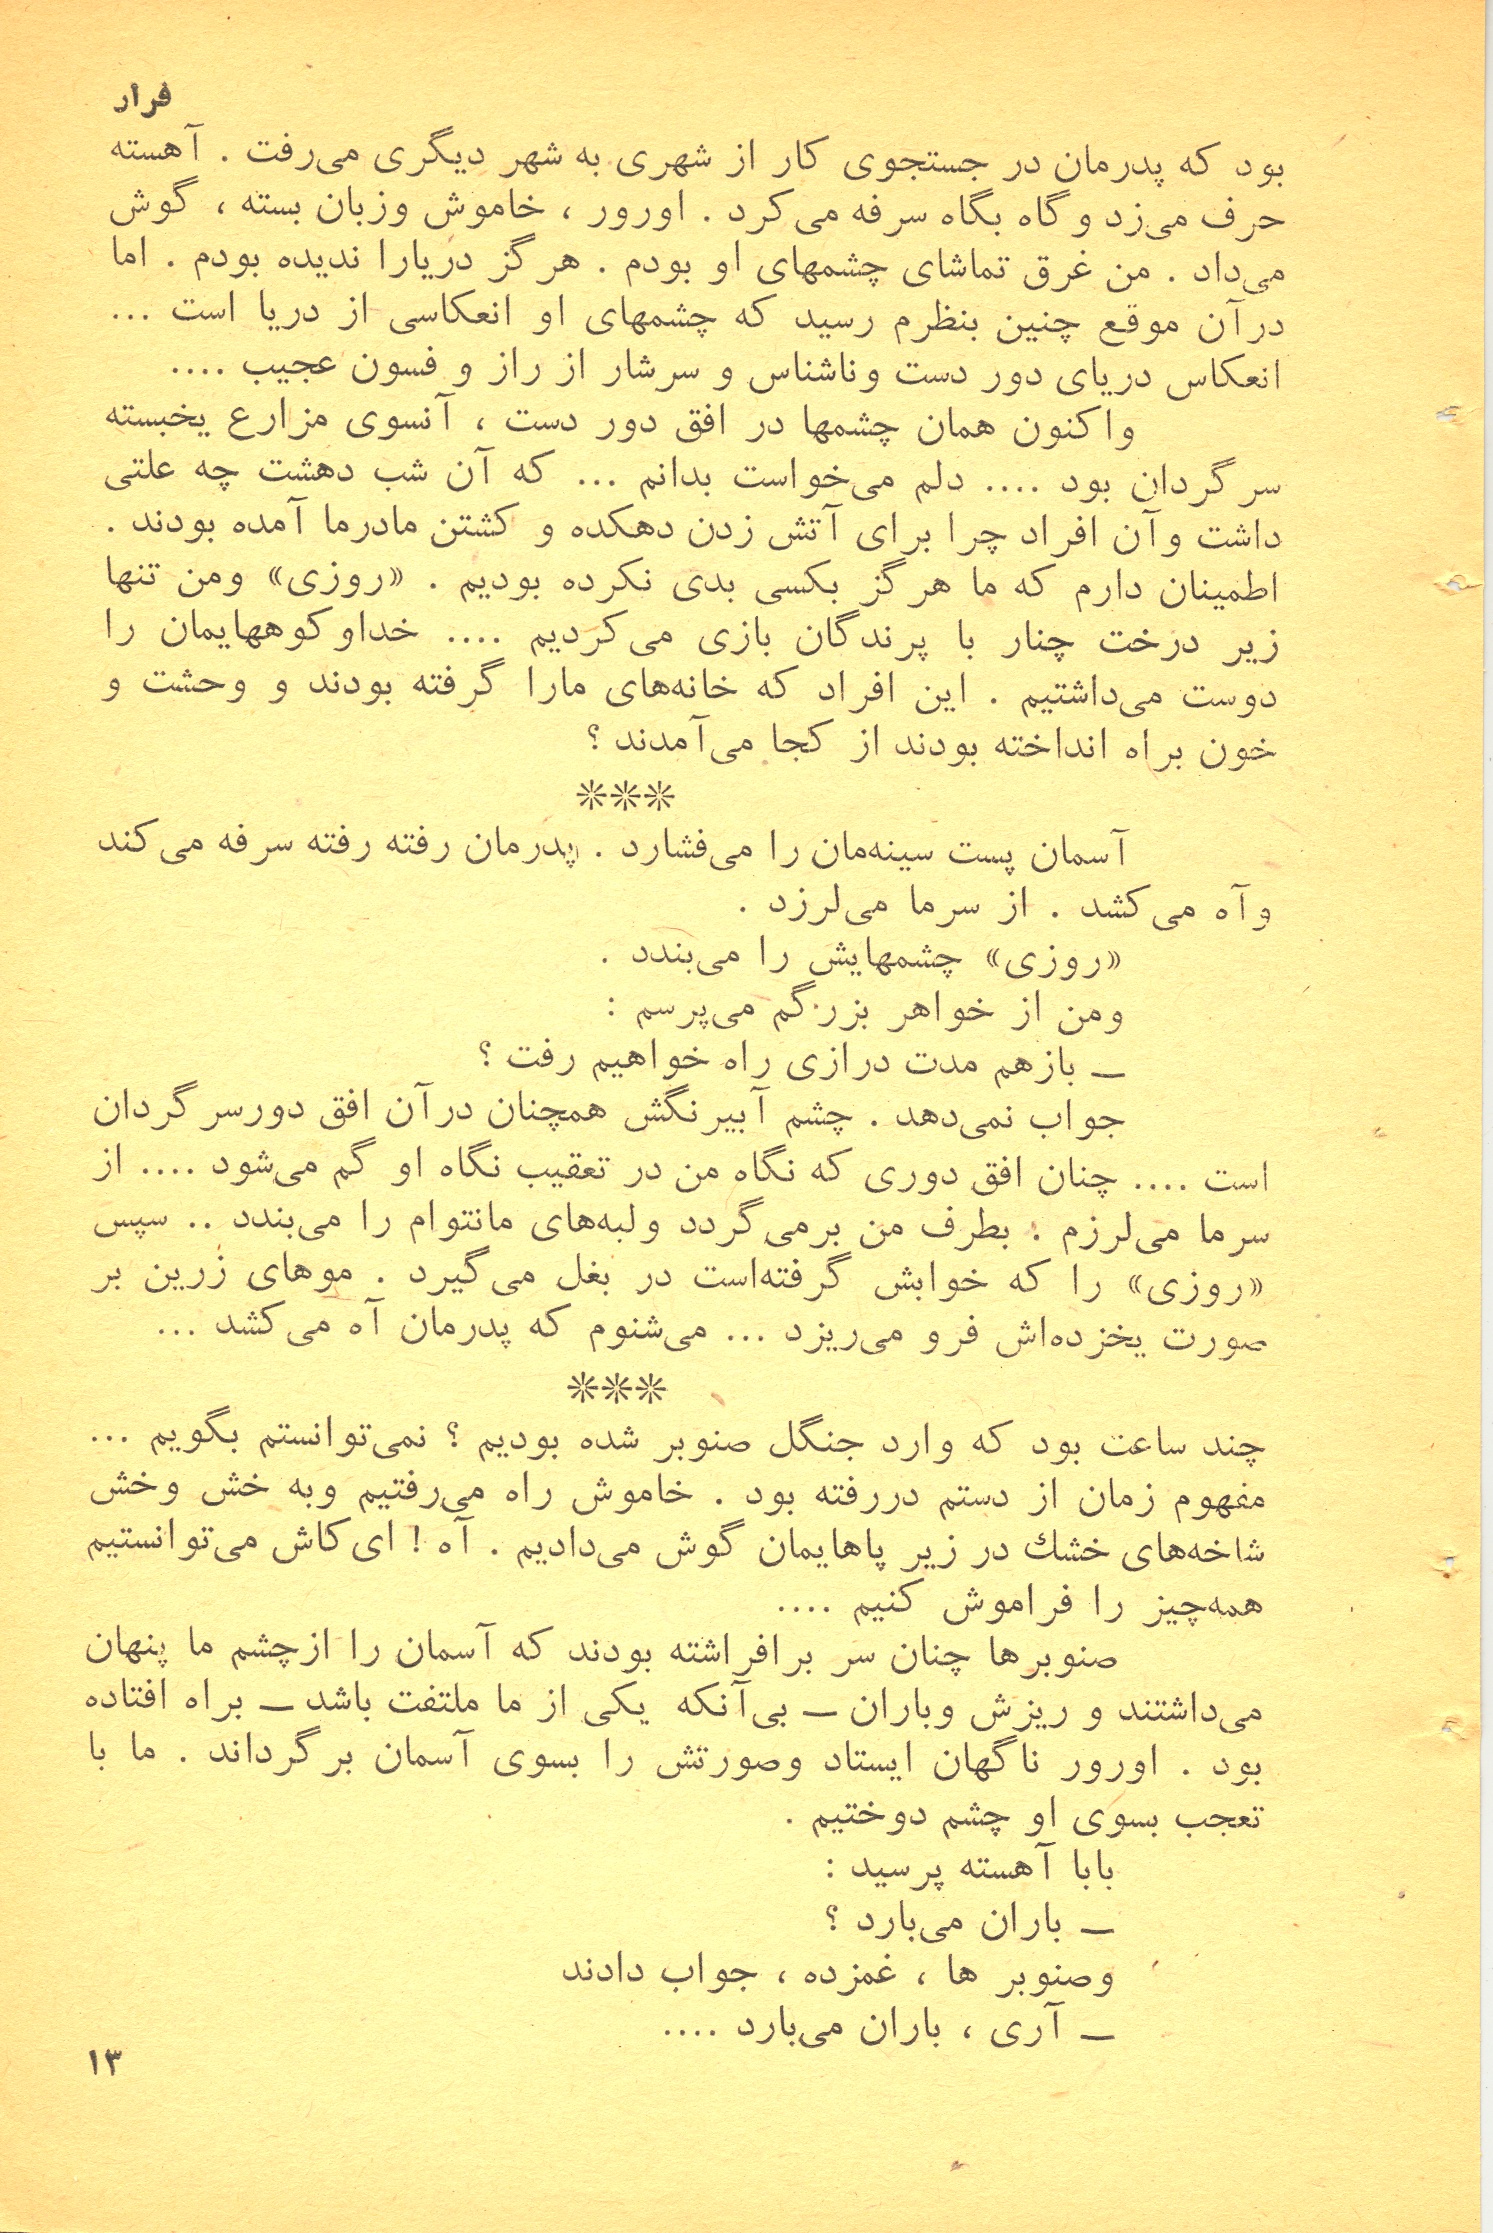 فرار
بود که پدرمان در جستجوی کار از شهری به شهر دیگری می‌رفت . آهسته
حرف می‌زد و گاه بگاه سرفه می‌کرد . اورور ، خاموش وزبان بسته ، گوش
می‌داد . من غرق تماشای چشمهای او بودم . هرگز دریارا ندیده بودم . اما
درآن موقع چنین بنظرم رسید که چشمهای او انعکاسی از دریا است ...
انعکاس دریای دور دست وناشناس و سرشار از راز و فسون عجیب ....
واکنون همان چشمها در افق دور دست ، آنسوی مزارع یخبسته
سرگردان بود .... دلم می‌خواست بدانم ... که آن شب دهشت چه علتی
داشت وآن افراد چرا برای آتش زدن دهکده و کشتن مادرما آمده بودند .
اطمینان دارم که ما هرگز بکسی بدی نکرده بودیم . «روزی» ومن تنها
زیر درخت چنار با پرندگان بازی می‌کردیم .... خداوکوههایمان را
دوست می‌داشتیم . این افراد که خانه‌های مارا گرفته بودند و وحشت و
خون براه انداخته بودند از کجا می‌آمدند ؟
***
آسمان پست سینه‌مان را می‌فشارد . پدرمان رفته رفته سرفه می‌کند
وآه می‌کشد . از سرما می‌لرزد .
«روزی» چشمهایش را می‌بندد .
ومن از خواهر بزرگم می‌پرسم :
ـ بازهم مدت درازی راه خواهیم رفت ؟
جواب نمی‌دهد . چشم آبیرنگش همچنان درآن افق دورسرگردان
است .... چنان افق دوری که نگاه من در تعقیب نگاه او گم می‌شود .... از
سرما می‌لرزم . بطرف من برمی‌گردد ولبه‌های مانتوام را می‌بندد .. سپس
«روزی» را که خوابش گرفته‌است در بغل می‌گیرد . موهای زرین بر
صورت یخزده‌اش فرو می‌ریزد ... می‌شنوم که پدرمان آه می‌کشد ...
***
چند ساعت بود که وارد جنگل صنوبر شده بودیم ؟ نمی‌توانستم بگویم ...
مفهوم زمان از دستم دررفته بود . خاموش راه می‌رفتیم وبه خش وخش
شاخه‌های خشك در زیر پاهایمان گوش می‌دادیم . آه ! ای‌کاش می‌توانستیم
همه‌چیز را فراموش کنیم ....
صنوبرها چنان سر برافراشته بودند که آسمان را ازچشم ما پنهان
می‌داشتند و ریزش وباران ـ بی‌آنکه یکی از ما ملتفت باشد ـ براه افتاده
بود . اورور ناگهان ایستاد وصورتش را بسوی آسمان برگرداند . ما با
تعجب بسوی او چشم دوختیم .
بابا آهسته پرسید :
ـ باران می‌بارد ؟
وصنوبر ها ، غمزده ، جواب دادند
ـ آری ، باران می‌بارد ....
۱۳